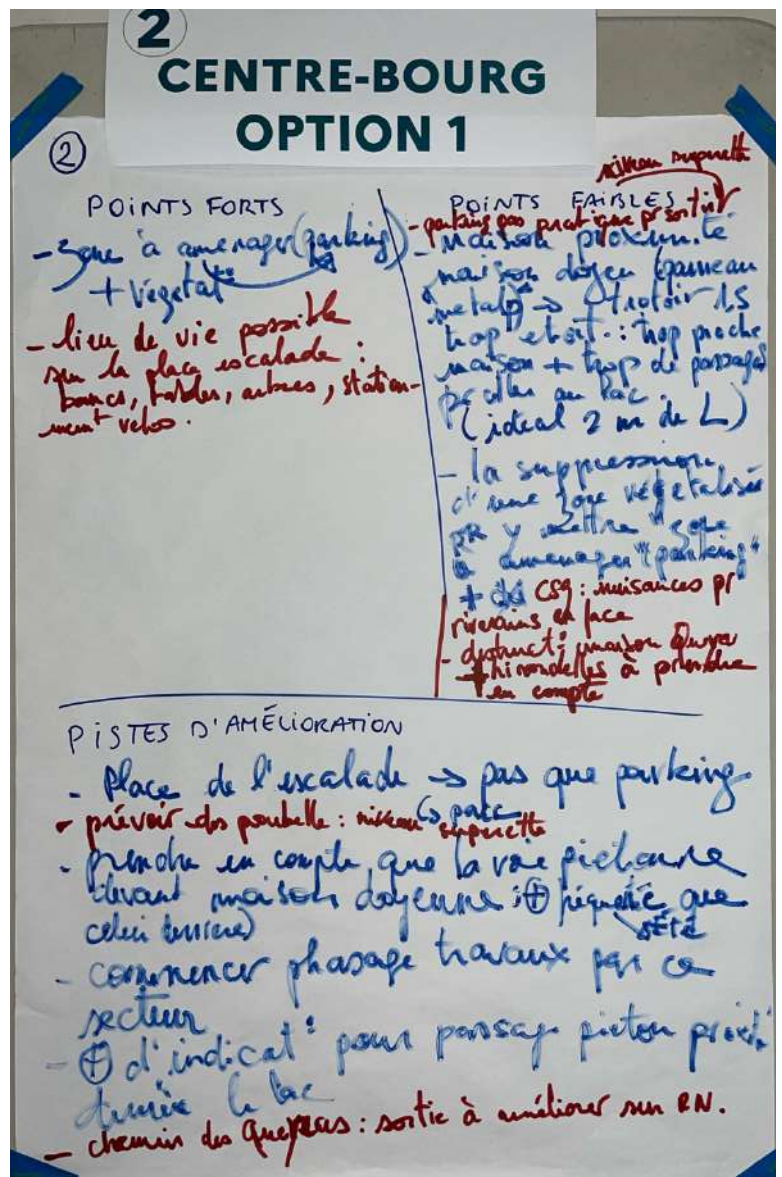 2
CENTRE-BOURG
OPTION 1
2
POINTS FORTS
- Zone à amenager (parking)
+ végétal
- lieu de vie possible
sur la place escalade :
bancs, tables, arbres, station-
nemt velos.
niveau superette
POINTS FAIBLES
- parking pas pratique pr sortir
- maison proximité
maison doyen (panneau
metal) → trotoir 1,5
trop etroit : trop proche
maison + trop de passages
pr aller au lac.
(ideal 2 m de L)
- la suppression
d'une zone végétalisée
pr y mettre "zone
à amenager "parking"
+ du CSG : nuisances pr
riverains en face
- destruct° maison
+ hirondelles à prendre
en compte
PISTES D'AMÉLIORATION
- Place de l'escalade → pas que parking
↳ parc
- prévoir des poubelle : niveau superette
- prendre en compte que la voie pietonne
devant maison doyenne : + fréquenté que
celui derriere)
été
- commencer phasage travaux par ce
secteur
- + d'indicat° pour passage pieton
le lac
- chemin des : sortie à améliorer sur RN.